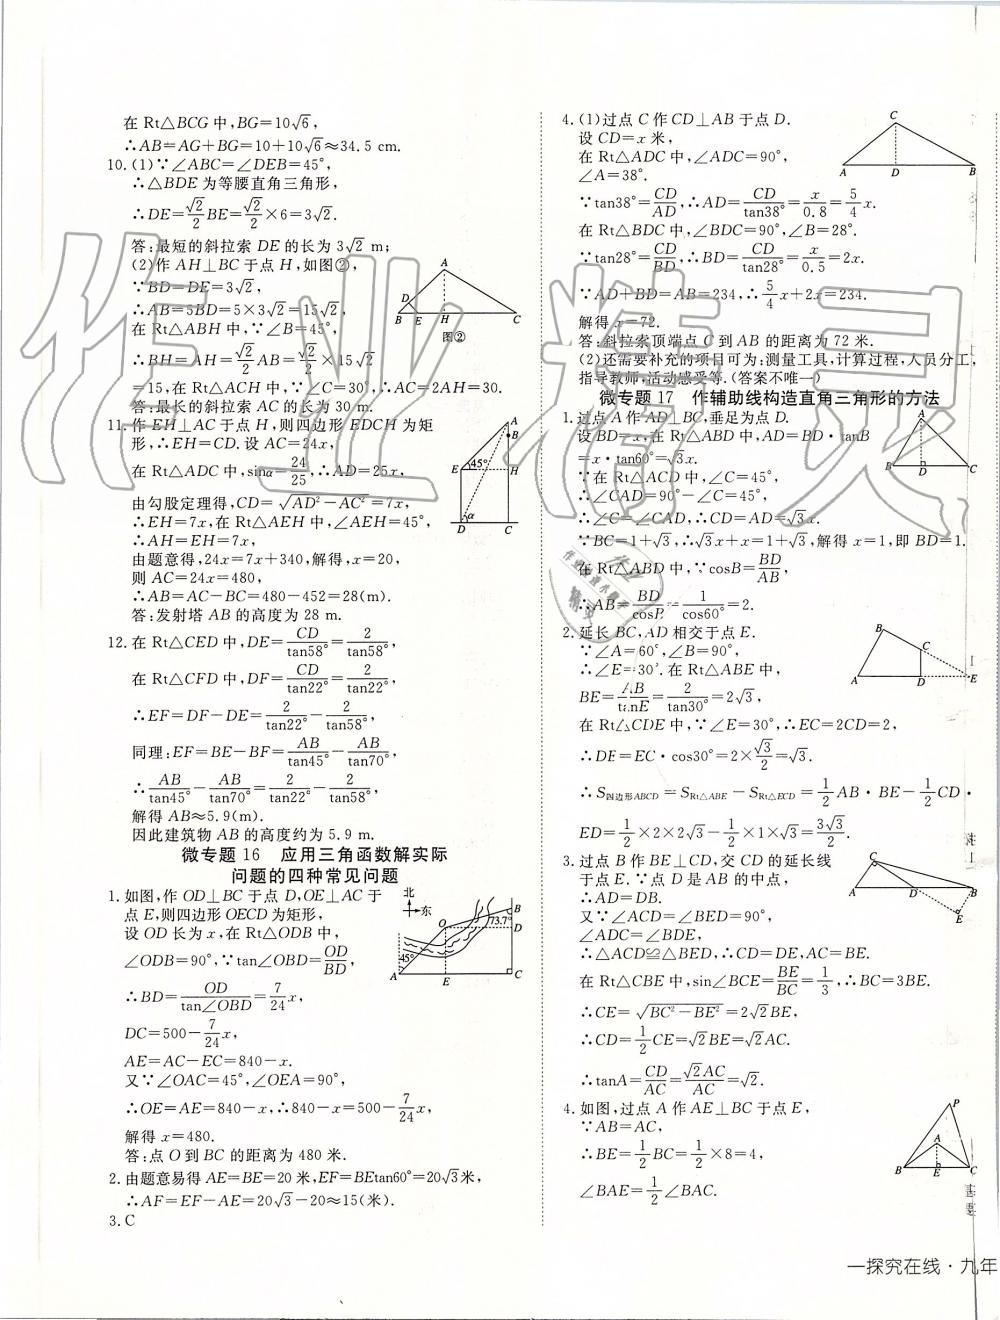 在 Rt△BCG 中,BG=10√6,
∴AB=AG+BG=10+10√6≈34.5 cm.
10.(1)∵∠ABC=∠DEB=45°,
∴△BDE 为等腰直角三角形,
∴DE=√2/2BE=√2/2×6=3√2.
答:最短的斜拉索 DE 的长为 3√2 m;
(2)作 AH⊥BC 于点 H,如图②,
∵BD=DE=3√2,
∴AB=5BD=5×3√2=15√2.
在 Rt△ABH 中,∵∠B=45°,
∴BH=AH=√2/2AB=√2/2×15√2
=15,在 Rt△ACH 中,∵∠C=30°,∴AC=2AH=30.
答:最长的斜拉索 AC 的长为 30 m.
A
D
B E H C
图②
11.作 EH⊥AC 于点 H,则四边形 EDCH 为矩
形,∴EH=CD.设 AC=24x,
在 Rt△ADC 中,sinα=24/25,∴AD=25x,
由勾股定理得,CD=√AD²−AC²=7x,
∴EH=7x,在 Rt△AEH 中,∠AEH=45°,
∴AH=EH=7x,
由题意得,24x=7x+340,解得,x=20,
则 AC=24x=480,
∴AB=AC−BC=480−452=28(m).
答:发射塔 AB 的高度为 28 m.
A
B
E 45° H
α
D C
12.在 Rt△CED 中,DE=CD/tan58°=2/tan58°,
在 Rt△CFD 中,DF=CD/tan22°=2/tan22°,
∴EF=DF−DE=2/tan22°−2/tan58°,
同理:EF=BE−BF=AB/tan45°−AB/tan70°,
∴AB/tan45°−AB/tan70°=2/tan22°−2/tan58°,
解得 AB≈5.9(m).
因此建筑物 AB 的高度约为 5.9 m.
微专题 16 应用三角函数解实际
问题的四种常见问题
1.如图,作 OD⊥BC 于点 D,OE⊥AC 于
点 E,则四边形 OECD 为矩形,
设 OD 长为 x,在 Rt△ODB 中,
∠ODB=90°,∵tan∠OBD=OD/BD,
∴BD=OD/tan∠OBD=7/24x,
DC=500−7/24x,
AE=AC−EC=840−x.
又∵∠OAC=45°,∠OEA=90°,
∴OE=AE=840−x,∴840−x=500−7/24x,
解得 x=480.
答:点 O 到 BC 的距离为 480 米.
北
东
B
O 73.7° D
45°
A E C
2.由题意易得 AE=BE=20 米,EF=BEtan60°=20√3米,
∴AF=EF−AE=20√3−20≈15(米).
3.C
4.(1)过点 C 作 CD⊥AB 于点 D.
设 CD=x 米,
在 Rt△ADC 中,∠ADC=90°,
∠A=38°.
∵tan38°=CD/AD,∴AD=CD/tan38°=x/0.8=5/4x.
在 Rt△BDC 中,∠BDC=90°,∠B=28°.
∵tan28°=CD/BD,∴BD=CD/tan28°=x/0.5=2x.
∵AD+BD=AB=234,∴5/4x+2x=234.
解得 x=72.
答:斜拉索顶端点 C 到 AB 的距离为 72 米.
(2)还需要补充的项目可为:测量工具,计算过程,人员分工,
指导教师,活动感受等.(答案不唯一)
C
A D B
微专题 17 作辅助线构造直角三角形的方法
1.过点 A 作 AD⊥BC,垂足为点 D.
设 BD=x,在 Rt△ABD 中,AD=BD·tanB
=x·tan60°=√3x.
∵在 Rt△ACD 中,∠C=45°,
∴∠CAD=90°−∠C=45°,
∴∠C=∠CAD,∴CD=AD=√3x.
∵BC=1+√3,∴√3x+x=1+√3,解得 x=1,即 BD=1.
在 Rt△ABD 中,∵cosB=BD/AB,
∴AB=BD/cosB=1/cos60°=2.
A
B D C
2.延长 BC,AD 相交于点 E.
∵∠A=60°,∠B=90°,
∴∠E=30°.在 Rt△ABE 中,
BE=AB/tanE=2/tan30°=2√3,
在 Rt△CDE 中,∵∠E=30°,∴EC=2CD=2,
∴DE=EC·cos30°=2×√3/2=√3.
∴S四边形ABCD=SRt△ABE−SRt△ECD=1/2AB·BE−1/2CD·
ED=1/2×2×2√3−1/2×1×√3=3√3/2.
B
C
A D E
3.过点 B 作 BE⊥CD,交 CD 的延长线
于点 E.∵点 D 是 AB 的中点,
∴AD=DB.
又∵∠ACD=∠BED=90°,
∠ADC=∠BDE,
∴△ACD≌△BED,∴CD=DE,AC=BE.
在 Rt△CBE 中,sin∠BCE=BE/BC=1/3,∴BC=3BE.
∴CE=√BC²−BE²=2√2BE,
∴CD=1/2CE=√2BE=√2AC.
∴tanA=CD/AC=√2AC/AC=√2.
C
A D B
E
4.如图,过点 A 作 AE⊥BC 于点 E,
∵AB=AC,
∴BE=1/2BC=1/2×8=4,
∠BAE=1/2∠BAC.
P
A
B E C
一探究在线·九年
作业精灵